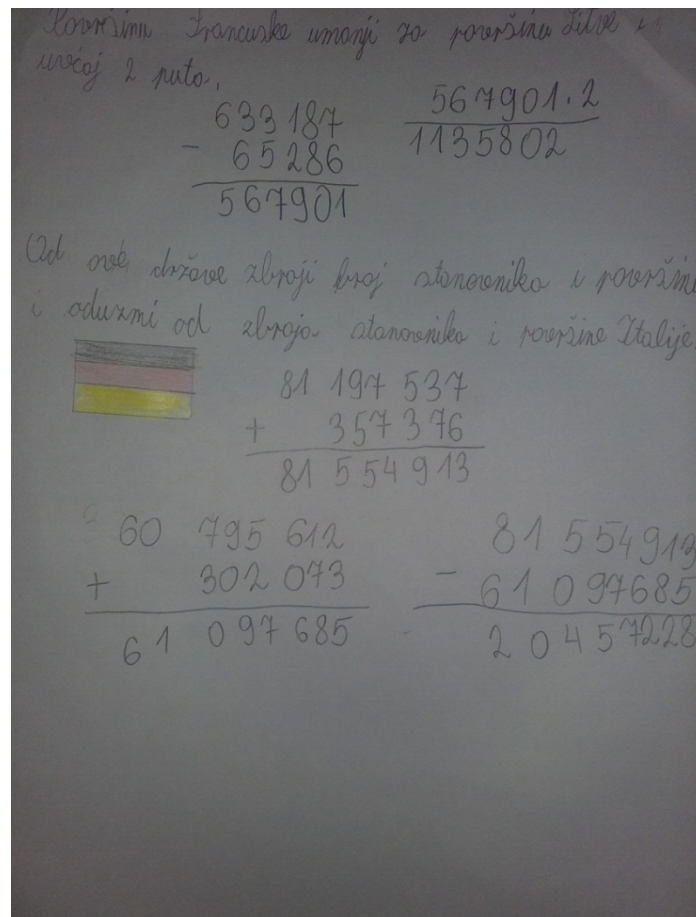 Površinu Francuske umanji za površinu Litve i
uvećaj 2 puta.
633 187
- 65286
567901
567901 · 2
1135802
Od ove države zbroji broj stanovnika i površinu
i oduzmi od zbroja stanovnika i površine Italije
81 197 537
+ 357 376
81 554 913
60 795 612
+ 302 073
61 097 685
81 554913
- 61 097685
20457228